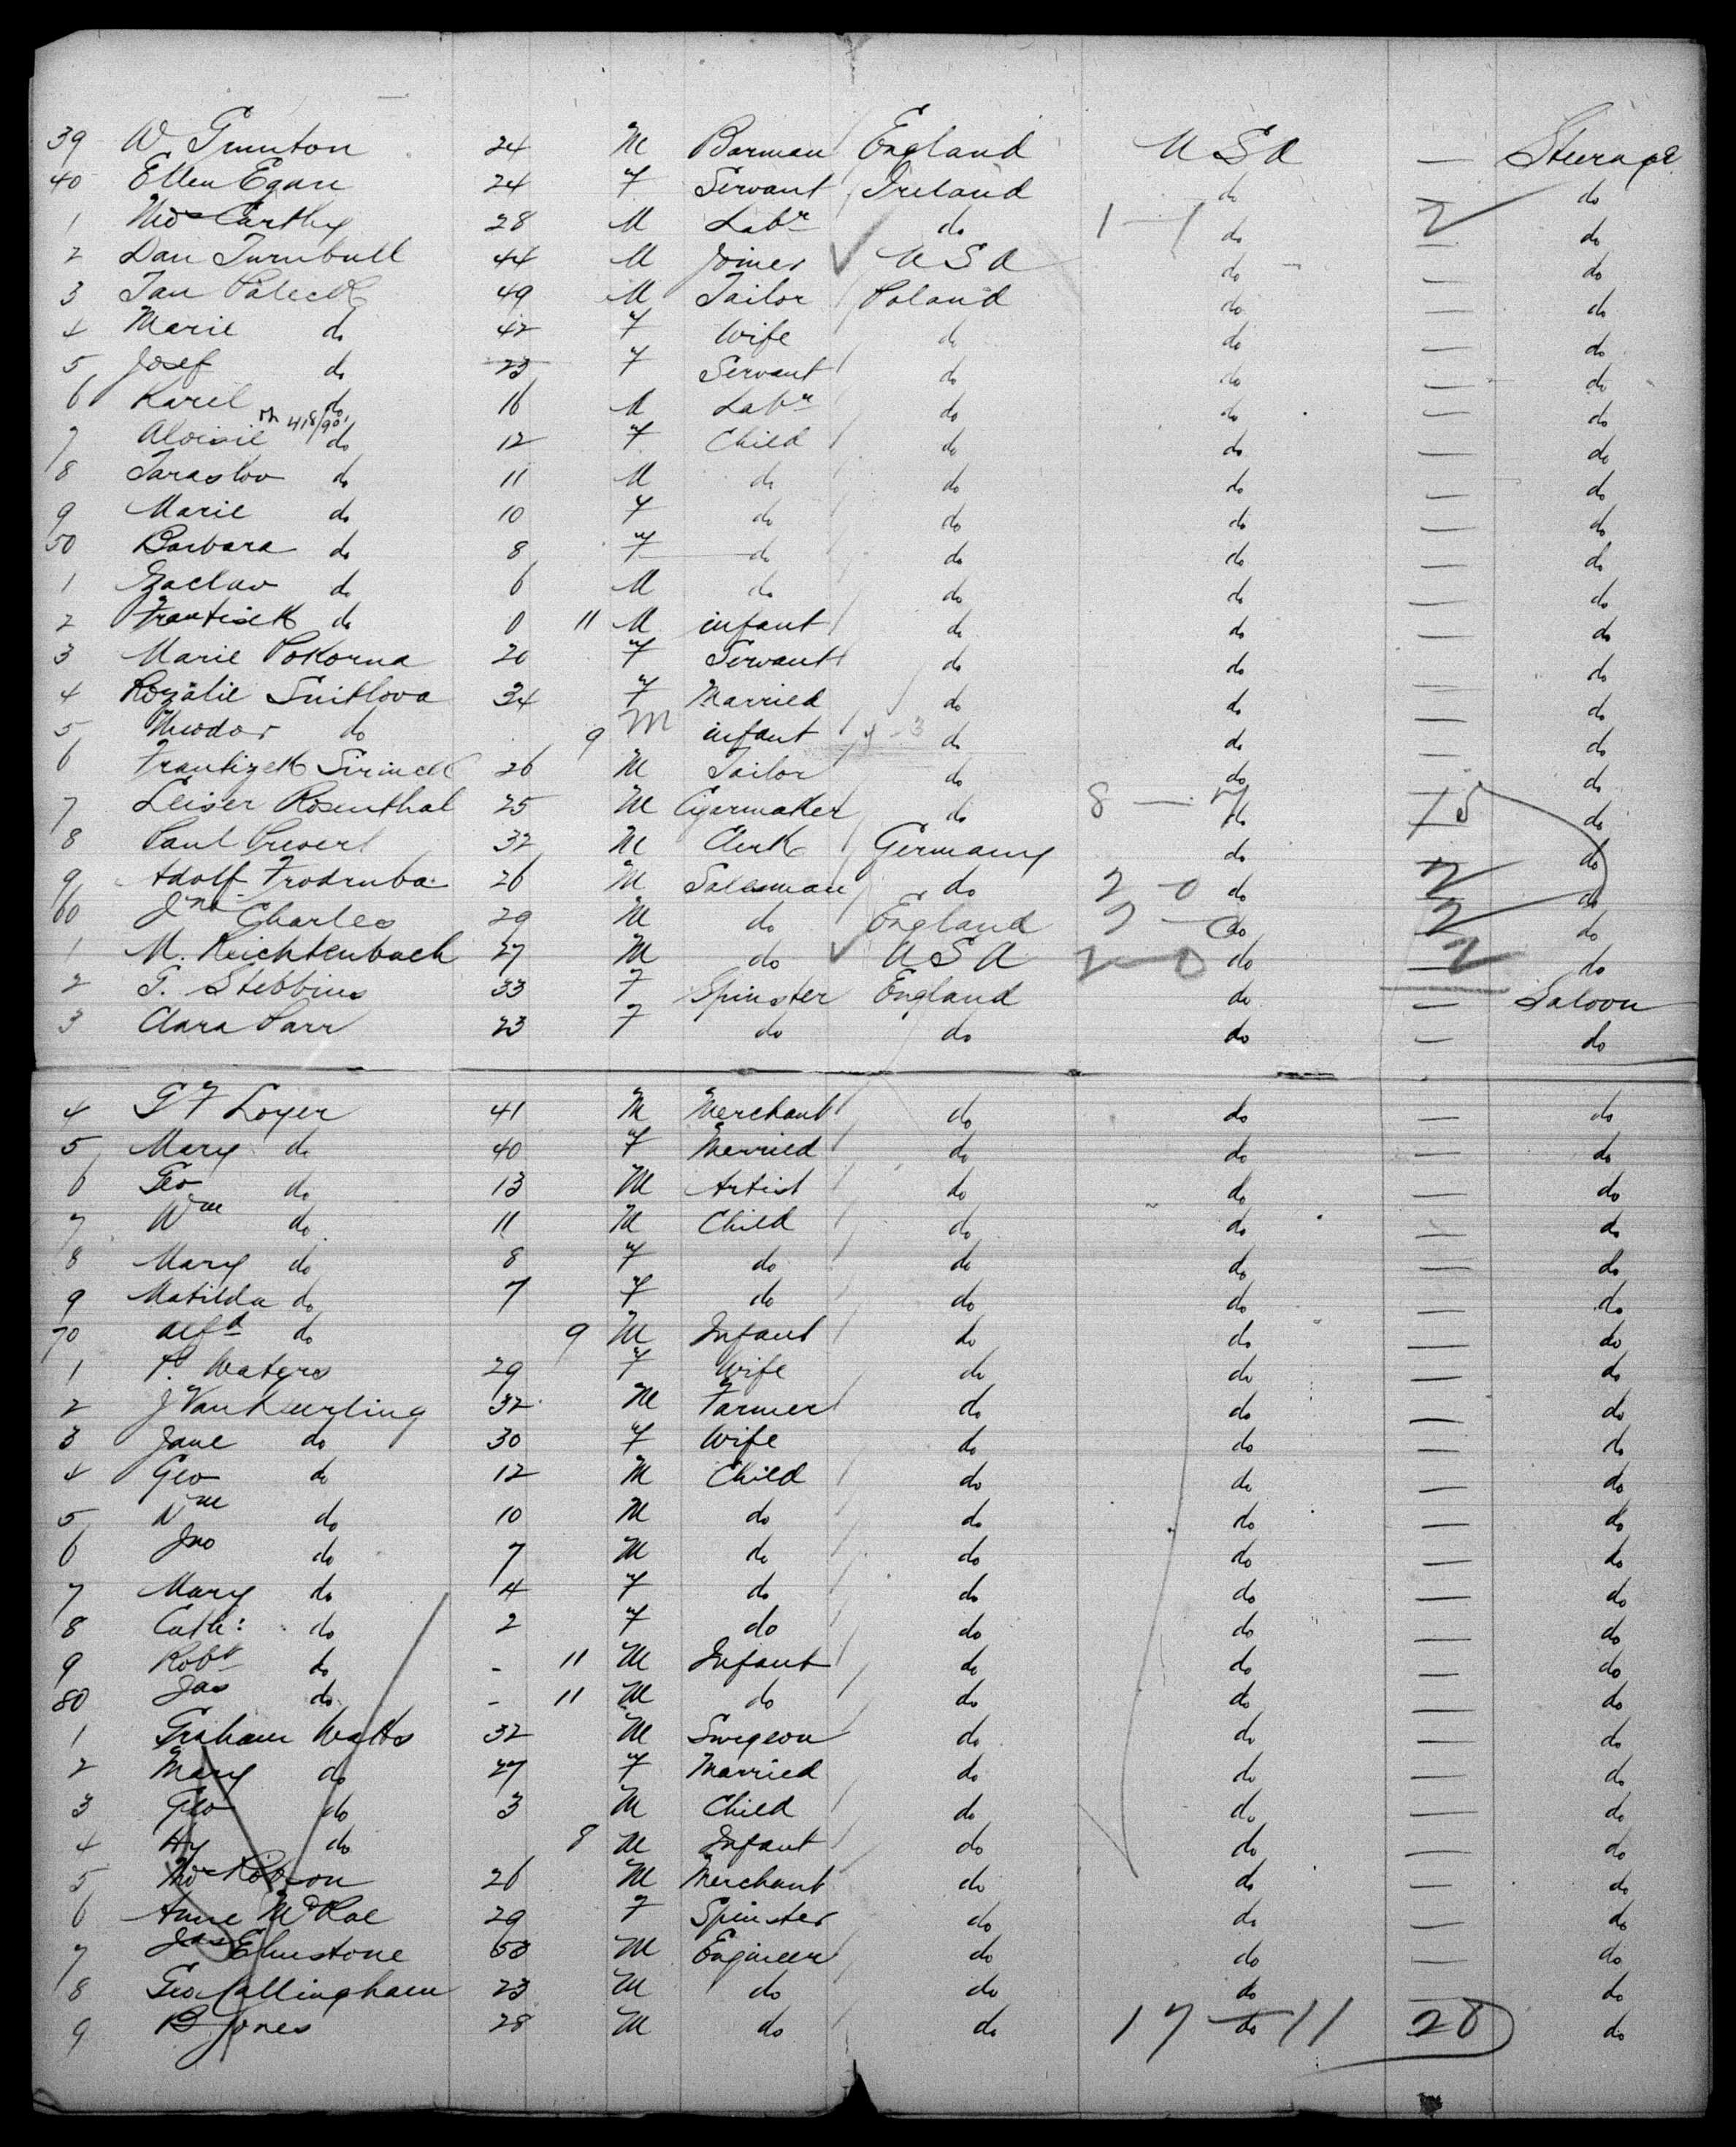 39 W. Gunnton 24 M Barman England U S A — Steerage
40 Ellen Egan 24 F Servant Ireland do 2 do
1 Thos Carthy 28 M Labr do 1 - 1 do — do
2 Dan Turnbull 44 M Joiner U S A do — do
3 Jan Paleck 49 M Tailor Poland do — do
4 Marie do 42 F Wife do do — do
5 Josef do 23 F Servant do do — do
6 Karel do 16 M Labr do do — do
7 Aloisie do 12 F Child do do — do
8 Jaraslov do 11 M do do do — do
9 Marie do 10 F do do do — do
50 Barbara do 8 F do do do — do
1 Vzaclav do 6 M do do do — do
2 Frantisek do 0 11 M infant do do — do
3 Marie Pokorna 20 F Servant do do — do
4 Rozalie Snitlova 34 F Married do do — do
5 Theodor do 9 M infant do do — do
6 Frantizek Sirinek 26 M Tailor do do — do
7 Leiser Rosenthal 25 M Cigarmaker do 8 — 7 do 15 do
8 Paul 32 M Clerk Germany do — do
9 Adolf Frodruba 26 M Salesman do 2 - 0 do 2 do
60 Jno Charles 29 M do England 2 - 0 do 2 do
1 M. Reichtenbach 27 M do U S A 2 - 0 do 2 do
2 G. Stebbins 33 F Spinster England do — Saloon
3 Clara Parr 23 F do do do — do
4 G F Loyer 41 M Merchant do do — do
5 Mary do 40 F Married do do — do
6 Geo do 13 M Artist do do — do
7 Wm do 11 M Child do do — do
8 Mary do 8 F do do do — do
9 Matilda do 7 F do do do — do
70 Alfd do 9 M Infant do do — do
1 P. Waters 29 F Wife do do — do
2 J Van Keerling 32 M Farmer do do — do
3 Jane do 30 F Wife do do — do
4 Geo do 12 M Child do do — do
5 Wm do 10 M do do do — do
6 Jno do 7 M do do do — do
7 Mary do 4 F do do do — do
8 Cath: do 2 F do do do — do
9 Robt do - 11 M Infant do do — do
80 Jas do - 11 M do do do — do
1 Graham Watts 32 M Surgeon do do — do
2 Mary do 27 F Married do do — do
3 Geo do 3 M Child do do — do
4 Hy do 8 M Infant do do — do
5 Thos Robson 26 M Merchant do do — do
6 Anne McRae 29 F Spinster do do — do
7 Jas Elmstone 53 M Engineer do do — do
8 Geo Callingham 23 M do do do — do
9 B Jones 28 M do do 17 - do 11 28 do